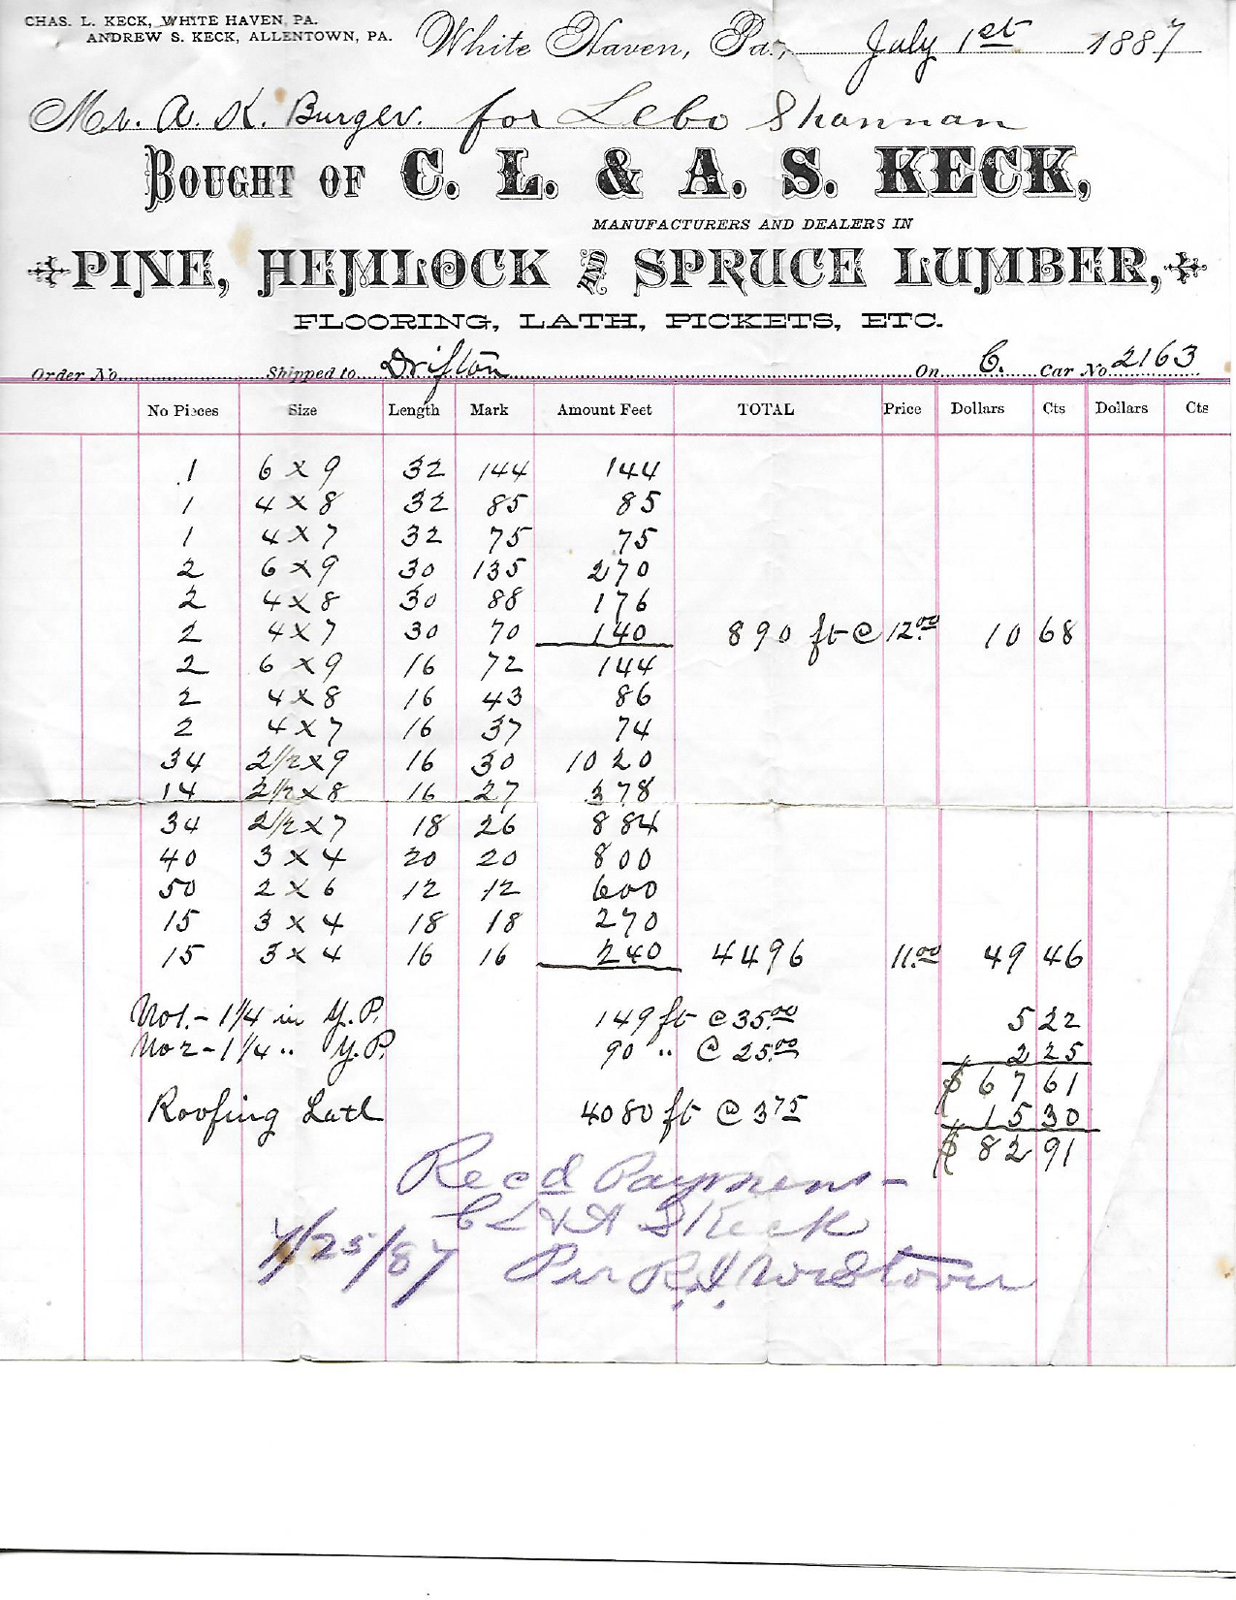 CHAS. L. KECK, WHITE HAVEN, PA.
ANDREW S. KECK, ALLENTOWN, PA.
White Haven, Pa., July 1st 1887
Mr. A. K. Burger. for Lebo Shannan
BOUGHT OF C. L. & A. S. KECK,
MANUFACTURERS AND DEALERS IN
PINE, HEMLOCK AND SPRUCE LUMBER,
FLOORING, LATH, PICKETS, ETC.
Order No. Shipped to Drifton On C. Car No. 2163
No Pieces Size Length Mark Amount Feet TOTAL Price Dollars Cts Dollars Cts
1 6 x 9 32 144 144
1 4 x 8 32 85 85
1 4 x 7 32 75 75
2 6 x 9 30 135 270
2 4 x 8 30 88 176
2 4 x 7 30 70 140 890 ft @ 12.00 10 68
2 6 x 9 16 72 144
2 4 x 8 16 43 86
2 4 x 7 16 37 74
34 2 1/2 x 9 16 30 1020
14 2 1/2 x 8 16 27 378
34 2 1/2 x 7 18 26 884
40 3 x 4 20 20 800
50 2 x 6 12 12 600
15 3 x 4 18 18 270
15 3 x 4 16 16 240 4496 11.00 49 46
No 1. - 1 1/4 in Y.P. 149 ft @ 35.00 5 22
No 2 - 1 1/4 " Y.P. 90 " @ 25.00 2 25
$ 67 61
Roofing Lath 4080 ft @ 3 75 15 30
$ 82 91
Recd Payment
C L & A S Keck
7/25/87 Per R. I.